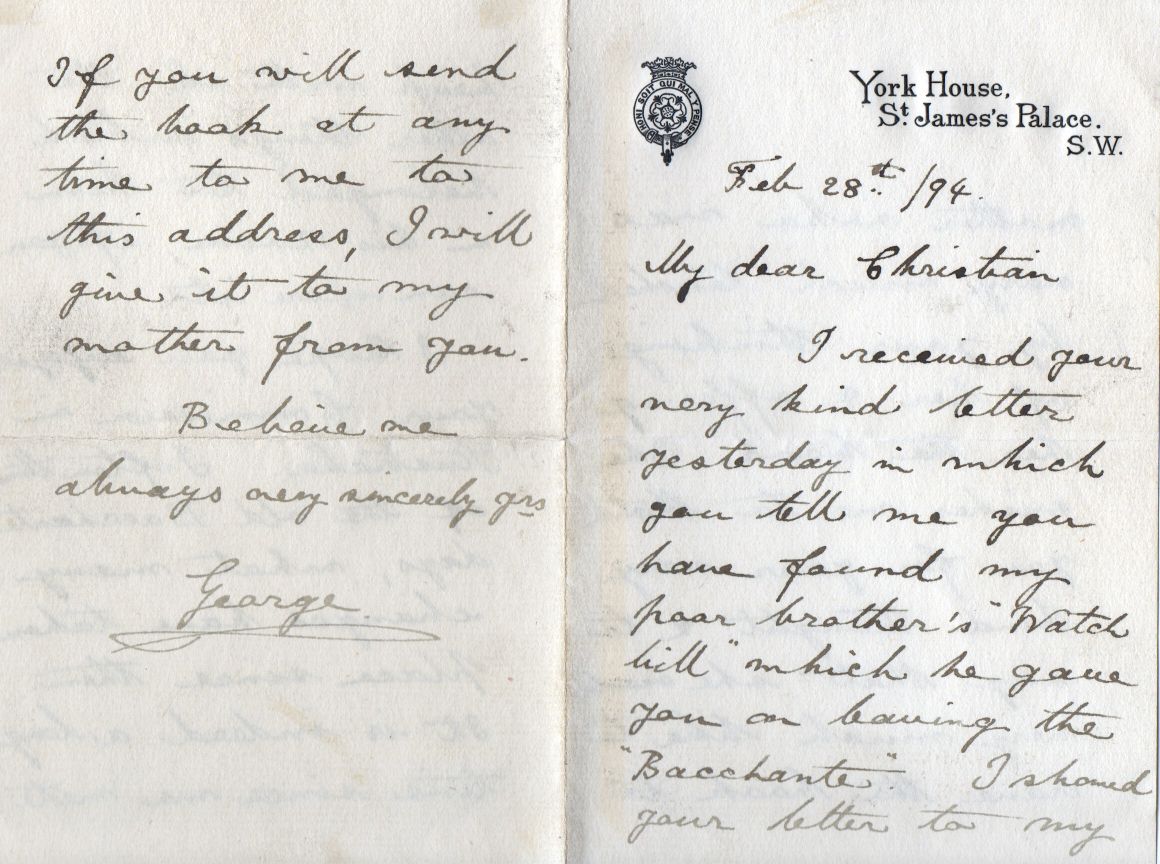 HONI SOIT QUI MAL Y PENSE
York House,
St. James's Palace.
S.W.
Feb 28th. /94
My dear Christian
I received your
very kind letter
yesterday in which
you tell me you
have found my
poor brother's "Watch
bill" which he gave
you on leaving the
"Bacchante" I showed
your letter to my
If you will send
the book at any
time to me to
this address, I will
give it to my
mother from you.
Believe me
always very sincerely yrs
George